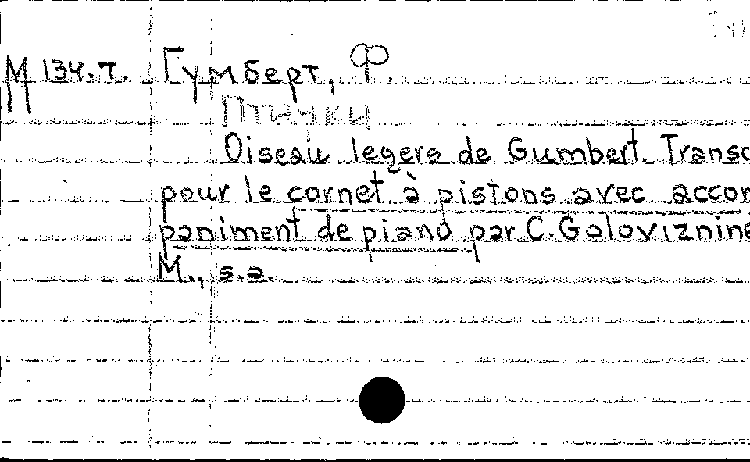 М 134.т. Гумберт, Ф.
Птички
Oiseau legere de Gumbert. Transc
pour le cornet à pistons avec accom
paniment de piano par C. Galoviznine
М., s.a.